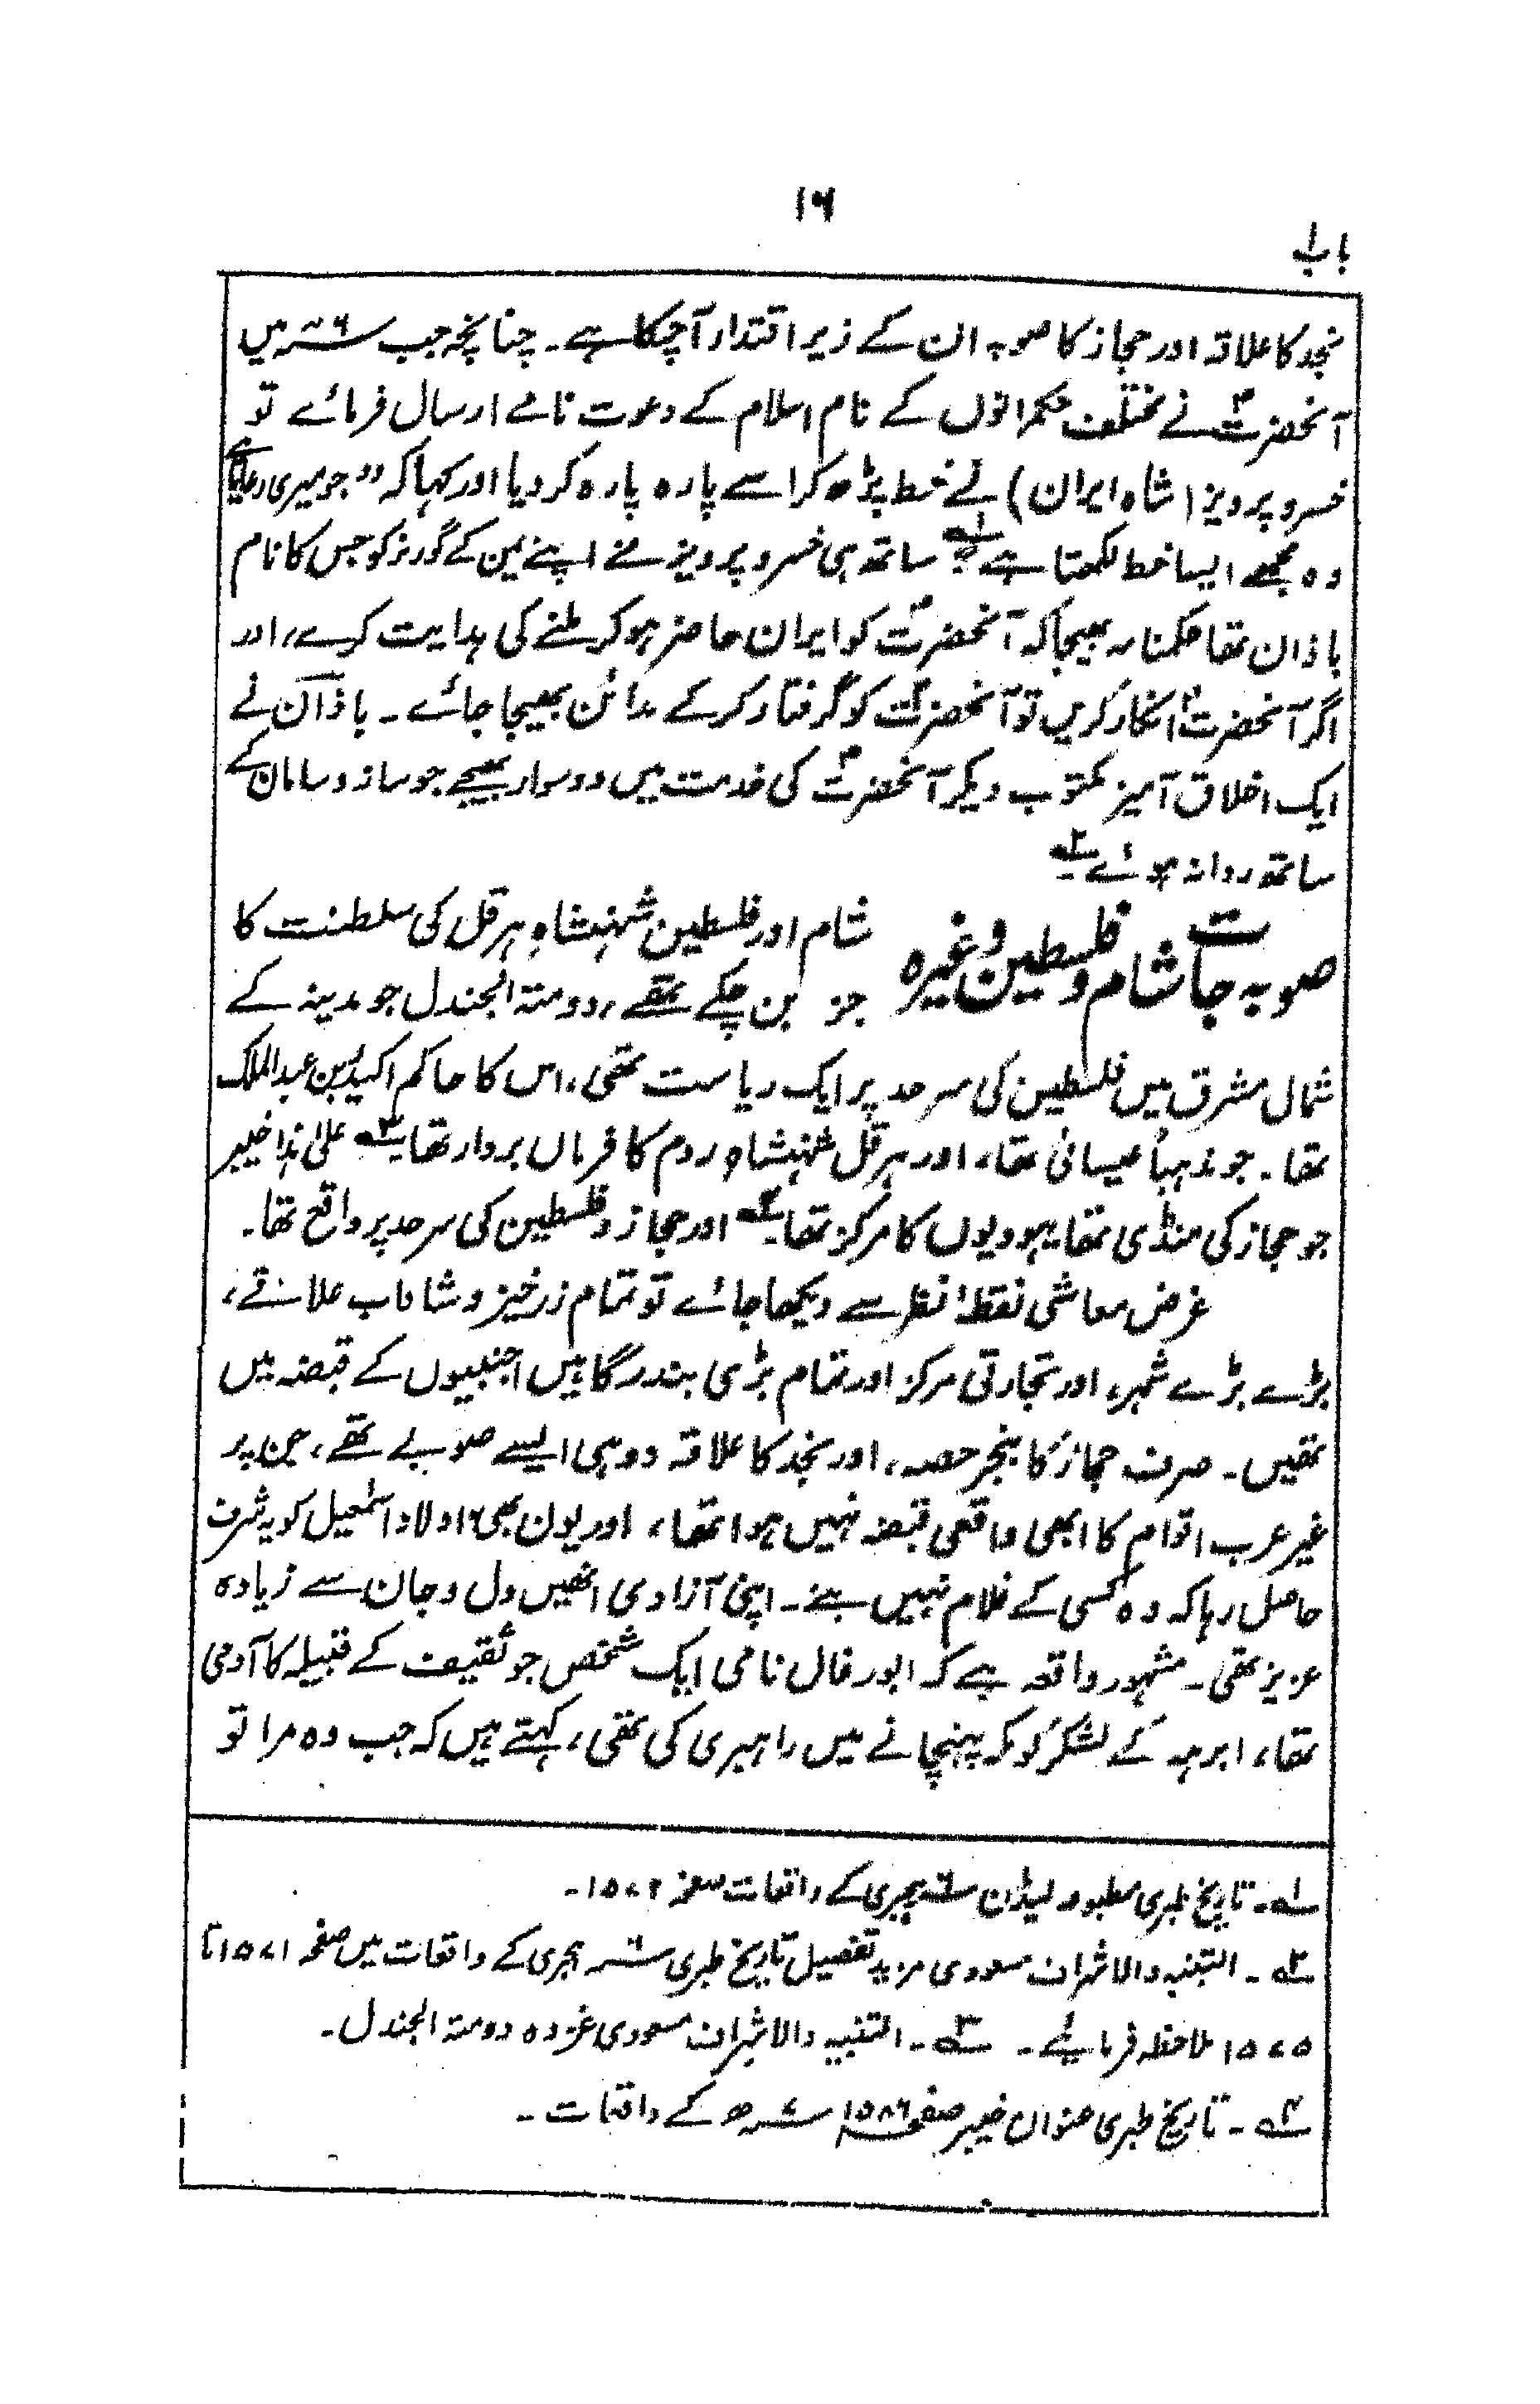 ۱۶
باب۱
نجد کا علاقہ اور حجاز کا صوبہ ان کے زیر اقتدار آچکا ہے۔ چنانچہ جب ۶ سنہ میں
آنحضرتؐ نے مختلف حکمرانوں کے نام اسلام کے دعوت نامے ارسال فرمائے تو
خسرو پرویز (شاہ ایران) نے خط پڑھ کر اسے پارہ پارہ کر دیا اور کہا کہ ”جو میری رعایا ہے
وہ مجھے ایسا خط لکھتا ہے“ ۱ ساتھ ہی خسرو پرویز نے اپنے یمن کے گورنر کو جس کا نام
باذان تھا حکمنامہ بھیجا کہ آنحضرتؐ کو ایران حاضر ہو کر ملنے کی ہدایت کرے، اور
اگر آنحضرتؐ انکار کریں تو آنحضرتؐ کو گرفتار کر کے مدائن بھیجا جائے۔ باذان نے
ایک اخلاق آمیز مکتوب دیکر آنحضرتؐ کی خدمت میں دو سوار بھیجے جو ساز و سامان کے
ساتھ روانہ ہوئے ۲
صوبہ جات شام و فلسطین وغیرہ
شام اور فلسطین شہنشاہِ ہرقل کی سلطنت کا
جز بن چکے تھے، دومتہ الجندل جو مدینہ کے
شمال مشرق میں فلسطین کی سرحد پر ایک ریاست تھی، اس کا حاکم اکیدر بن عبدالملک
تھا۔ جو مذہباً عیسائی تھا، اور ہرقل شہنشاہِ روم کا فرماں بردار تھا ۳ علیٰ ہذا خیبر
جو حجاز کی منڈی تھا یہودیوں کا مرکز تھا ۴ اور حجاز و فلسطین کی سرحد پر واقع تھا۔
غرض معاشی نقطۂ نظر سے دیکھا جائے تو تمام زرخیز و شاداب علاقے،
بڑے بڑے شہر، اور تجارتی مرکز اور تمام بڑی بندرگاہیں اجنبیوں کے قبضہ میں
تھیں۔ صرف حجاز کا بنجر حصہ، اور نجد کا علاقہ دو ہی ایسے صوبے تھے، جن پر
غیر عرب اقوام کا ابھی واقعی قبضہ نہیں ہوا تھا، اور یوں بھی اولاد اسمٰعیل کو یہ شرف
حاصل رہا کہ وہ کسی کے غلام نہیں بنے۔ اپنی آزادی انھیں دل و جان سے زیادہ
عزیز تھی۔ مشہور واقعہ ہے کہ ابورغال نامی ایک شخص جو ثقیف کے قبیلہ کا آدمی
تھا، ابرہہ کے لشکر کو مکہ پہنچانے میں راہبری کی تھی، کہتے ہیں کہ جب وہ مرا تو
۱۔ تاریخ طبری مطبوعہ لیڈن ۶ سنہ ہجری کے واقعات صفحہ ۱۵۷۲۔
۲۔ التنبیہ والاشراف مسعودی مزید تفصیل تاریخ طبری ۶ سنہ ہجری کے واقعات میں صفحہ ۱۵۷۱ تا
۱۵۷۵ ملاحظہ فرمائیے۔ ۳۔ التنبیہ والاشراف مسعودی غزوہ دومتہ الجندل۔
۴۔ تاریخ طبری عنوان خیبر صفحہ ۱۵۸۶ ۷ سنہ ھ کے واقعات۔